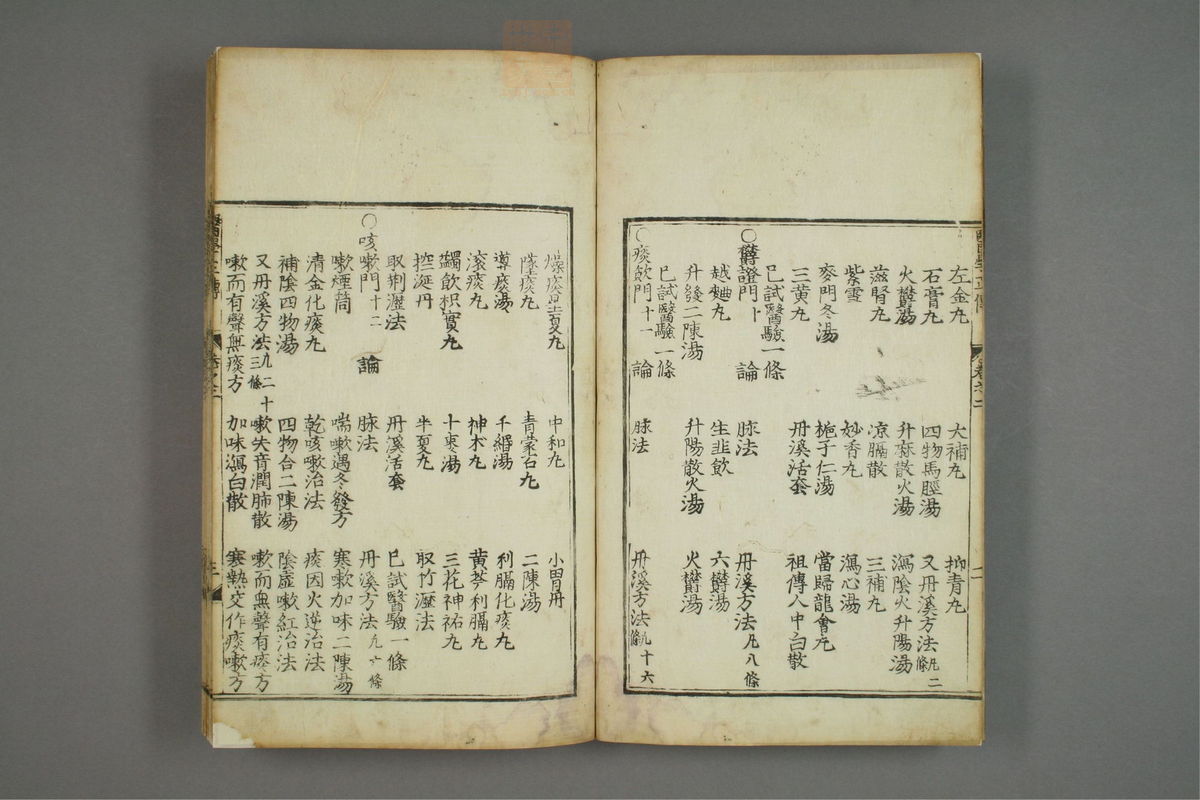 醫學正傳 卷之二 二
左金丸 大補丸 抑青丸
石膏丸 四物馬脛湯 又丹溪方法凡二條
火鬱湯 升麻散火湯 瀉陰火升陽湯
滋腎丸 凉膈散 三補丸
紫雪 妙香丸 瀉心湯
麥門冬湯 梔子仁湯 當歸龍會丸
三黃丸 丹溪活套 祖傳人中白散
已試醫驗一條
○鬱證門十 論 脉法 丹溪方法凡八條
越麯丸 生韭飲 六鬱湯
升發二陳湯 升陽散火湯 火鬱湯
已試醫驗一條
○痰飲門十一 論 脉法 丹溪方法凡十六條
燥痰星夏丸 中和丸 小胃丹
墜痰丸 青蒙石丸 二陳湯
導痰湯 千緡湯 利膈化痰丸
滾痰丸 神朮丸 黃芩利膈丸
蠲飲枳實丸 十棗湯 三花神祐丸
控涎丹 半夏丸 取竹瀝法
取荆瀝法 丹溪活套 已試醫驗一條
○咳嗽門十二 論 脉法 丹溪方法凡六條
嗽煙筒 喘嗽遇冬發方 寒嗽加味二陳湯
清金化痰丸 乾咳嗽治法 痰因火逆治法
補陰四物湯 四物合二陳湯 陰虛嗽紅治法
又丹溪方法凡二十三條 嗽失音潤肺散 嗽而無聲有痰方
嗽而有聲無痰方 加味瀉白散 寒熱交作痰嗽方
醫學正傳 卷之二 三